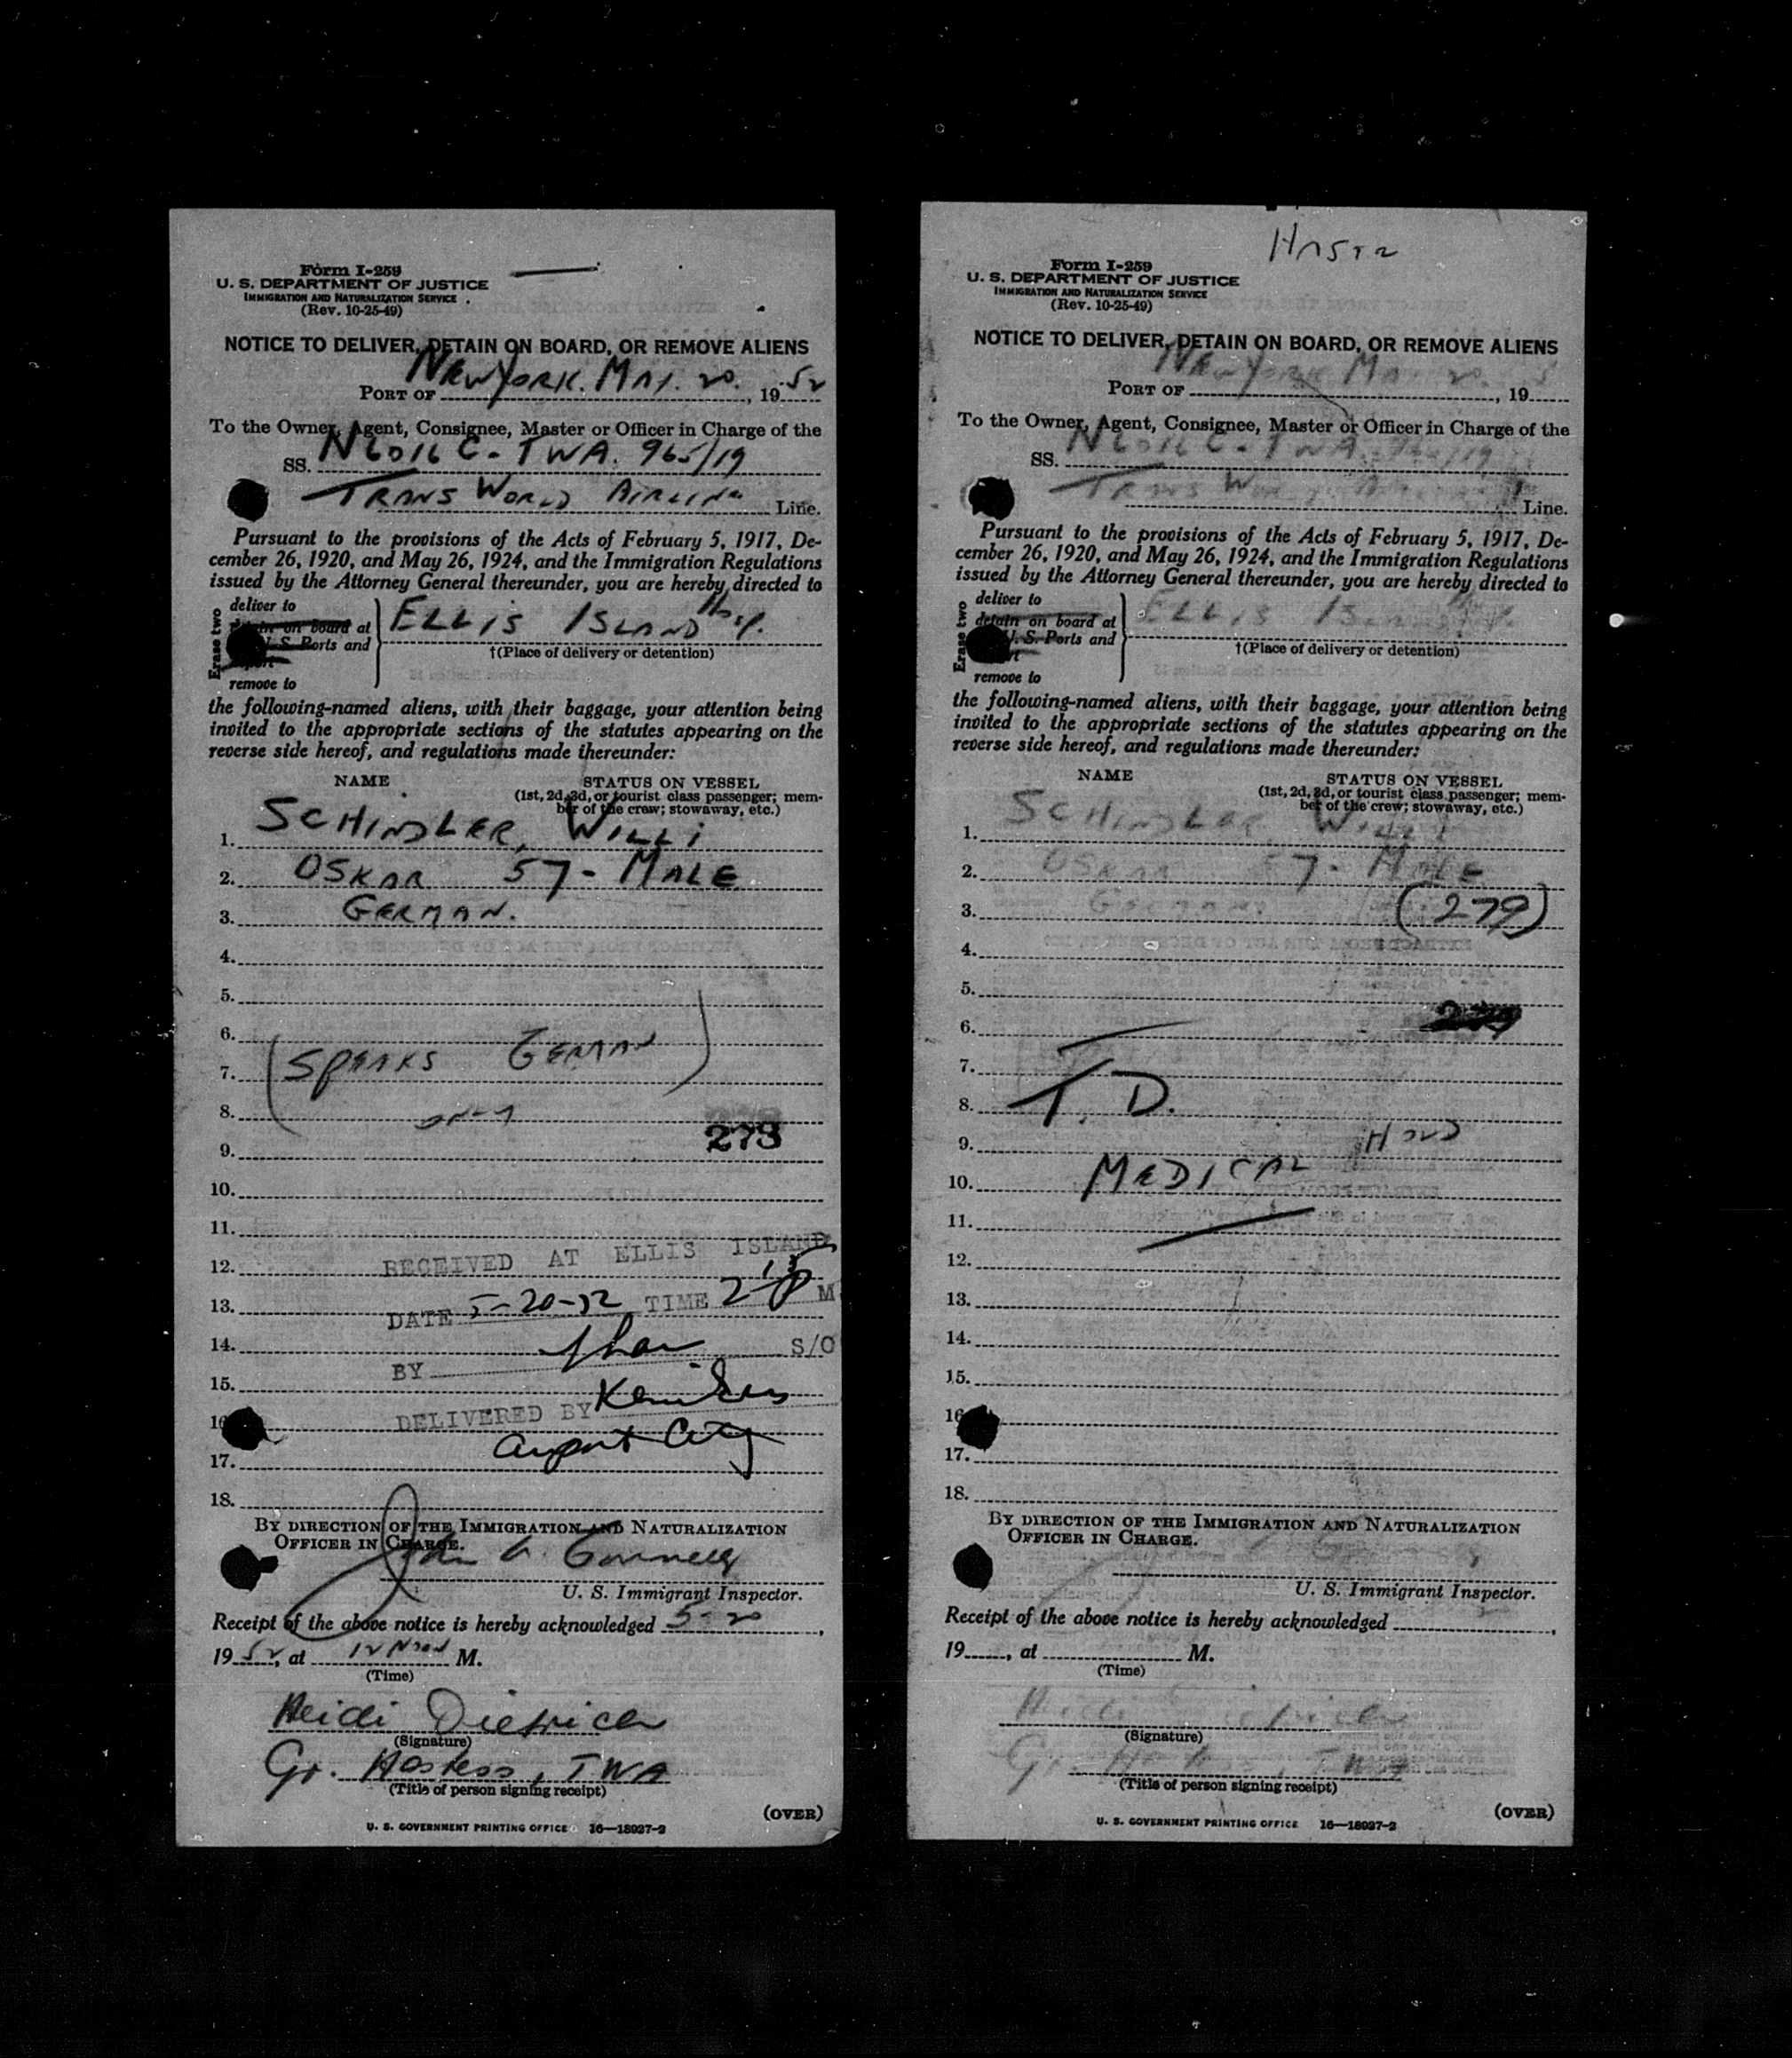 Form I-259
U. S. DEPARTMENT OF JUSTICE
IMMIGRATION AND NATURALIZATION SERVICE
(Rev. 10-25-49)
NOTICE TO DELIVER, DETAIN ON BOARD, OR REMOVE ALIENS
PORT OF NEW YORK. MAY. 20., 1952
To the Owner, Agent, Consignee, Master or Officer in Charge of the
SS. N6016C - TWA. 965/19
TRANS WORLD AIRLINE Line.
Pursuant to the provisions of the Acts of February 5, 1917, De-
cember 26, 1920, and May 26, 1924, and the Immigration Regulations
issued by the Attorney General thereunder, you are hereby directed to
Erase two
deliver to
detain on board at
U. S. Ports and
remove to
ELLIS ISLAND
†(Place of delivery or detention)
the following-named aliens, with their baggage, your attention being
invited to the appropriate sections of the statutes appearing on the
reverse side hereof, and regulations made thereunder:
NAME STATUS ON VESSEL
(1st, 2d, 3d, or tourist class passenger; mem-
ber of the crew; stowaway, etc.)
1. SCHINDLER, WILLI
2. OSKAR 57 - MALE
3. GERMAN.
4.
5.
6.
7. (SPEAKS GERMAN
8. ONLY)
273
9.
10.
11.
12. RECEIVED AT ELLIS ISLAND
13. DATE 5-20-52 TIME 2 15 P M
14. S/O
BY
15.
16. DELIVERED BY
Airport City
17.
18.
BY DIRECTION OF THE IMMIGRATION AND NATURALIZATION
OFFICER IN CHARGE.
John A. Connelly
U. S. Immigrant Inspector.
Receipt of the above notice is hereby acknowledged 5-20,
1952, at 12 Noon M.
(Time)
Heidi Dietrich
(Signature)
Gr. Hostess, TWA
(Title of person signing receipt)
(OVER)
U. S. GOVERNMENT PRINTING OFFICE 16—18927-2
Form I-259
U. S. DEPARTMENT OF JUSTICE
IMMIGRATION AND NATURALIZATION SERVICE
(Rev. 10-25-49)
NOTICE TO DELIVER, DETAIN ON BOARD, OR REMOVE ALIENS
PORT OF NEW YORK MAY 20., 19
To the Owner, Agent, Consignee, Master or Officer in Charge of the
SS. N6016C - TWA. 965/19
TRANS WORLD Line.
Pursuant to the provisions of the Acts of February 5, 1917, De-
cember 26, 1920, and May 26, 1924, and the Immigration Regulations
issued by the Attorney General thereunder, you are hereby directed to
Erase two
deliver to
detain on board at
U. S. Ports and
remove to
ELLIS ISLAND
†(Place of delivery or detention)
the following-named aliens, with their baggage, your attention being
invited to the appropriate sections of the statutes appearing on the
reverse side hereof, and regulations made thereunder:
NAME STATUS ON VESSEL
(1st, 2d, 3d, or tourist class passenger; mem-
ber of the crew; stowaway, etc.)
1. SCHINDLER, WILLI
2. OSKAR 57 - MALE
3. GERMAN. (279)
4.
5.
6.
7.
8. T. D.
9.
10. MEDICAL
11.
12.
13.
14.
15.
16.
17.
18.
BY DIRECTION OF THE IMMIGRATION AND NATURALIZATION
OFFICER IN CHARGE.
U. S. Immigrant Inspector.
Receipt of the above notice is hereby acknowledged ,
19 , at M.
(Time)
Heidi Dietrich
(Signature)
Gr. Hostess, TWA
(Title of person signing receipt)
(OVER)
U. S. GOVERNMENT PRINTING OFFICE 16—18927-2